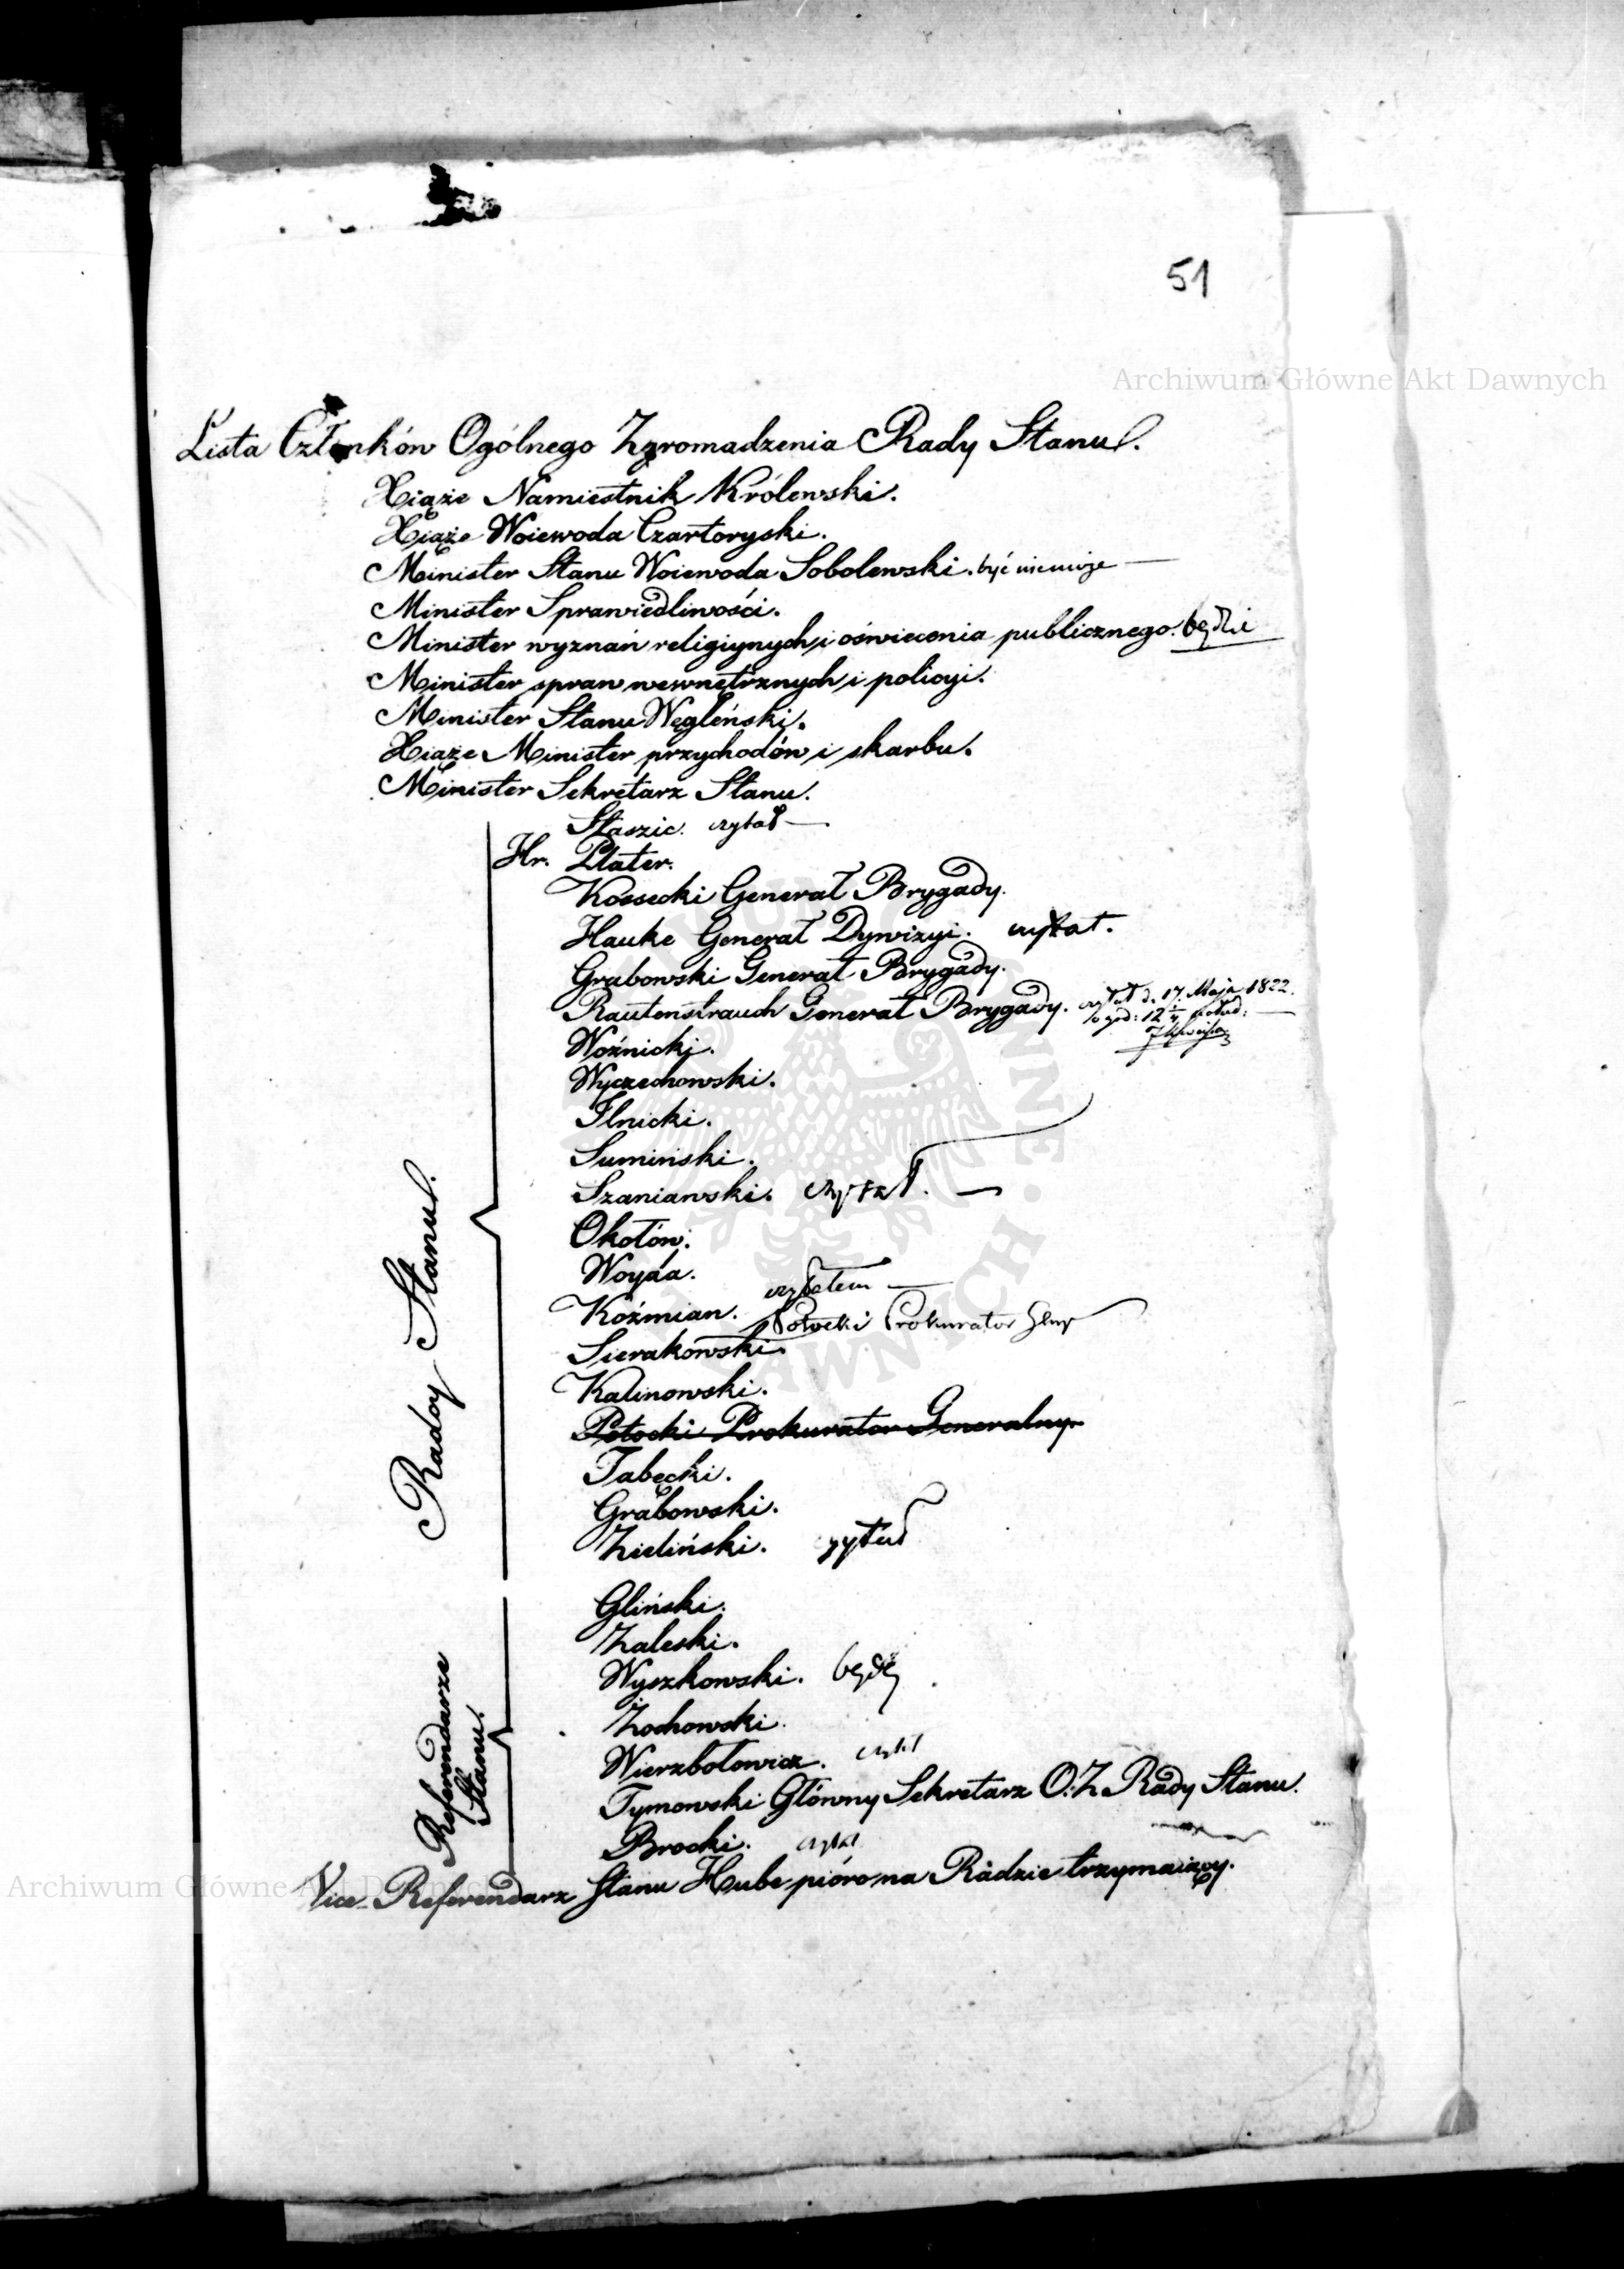 51
Archiwum Główne Akt Dawnych
Lista Członków Ogólnego Zgromadzenia Rady Stanu.
Xiąże Namiestnik Królewski.
Xiąże Woiewoda Czartoryski.
Minister Stanu Woiewoda Sobolewski. być niemoże —
Minister Sprawiedliwości.
Minister wyznań religiynych i oświecenia publicznego. będzie
Minister spraw wewnętrznych i policyi.
Minister Stanu Węgleński.
Xiąże Minister przychodów i skarbu.
Minister Sekretarz Stanu.
Staszic. czytał —
Hr. Plater.
Kossecki Generał Brygady.
Hauke Generał Dywizyi. czytał.
Grabowski Generał Brygady.
Rautenstrauch Generał Brygady. czytał d. 17. Maja 1822.
o god: 12 1/4 połud: —
Woźnicki.
Wyczechowski.
Ilnicki.
Sumiński.
Szaniawski. czytał. —
Okołów.
Woyda.
czytałem —
Koźmian. Potocki Prokurator
Sierakowski.
Kalinowski.
Potocki Prokurator Generalny.
Tabęcki.
Grabowski.
Zieliński. czytał
Radcy Stanu.
Gliński.
Zaleski.
Wyszkowski. będę
Żochowski.
Wierzbołowicz. czytał
Tymowski Główny Sekretarz O. Z. Rady Stanu.
Brocki. czytał
Referendarze
Stanu.
Vice-Referendarz Stanu Hube pióro na Radzie trzymaiący.
Archiwum Główne Akt Dawnych